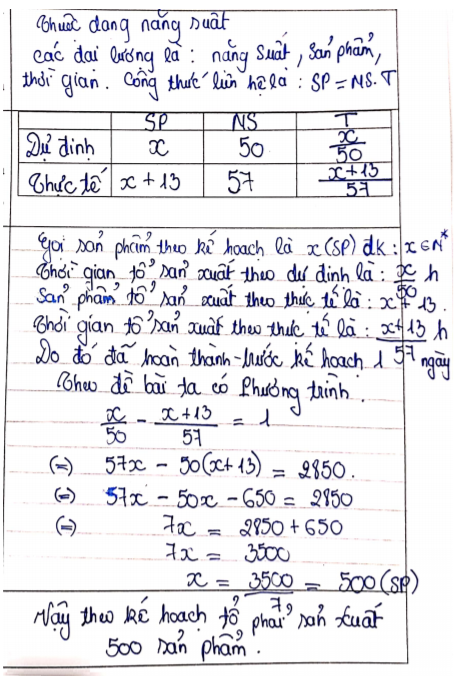 Thuộc dạng năng suất
các đại lượng là : năng suất, sản phẩm,
thời gian. Công thức liên hệ là : SP = NS.T
SP NS T
Dự định x 50 x/50
Thực tế x + 13 57 x+13/57
Gọi sản phẩm theo kế hoạch là x (SP) đk : x ∈ N*
Thời gian tổ sản xuất theo dự định là : x/50 h
Sản phẩm tổ sản xuất theo thực tế là : x + 13.
Thời gian tổ sản xuất theo thực tế là : x+13/57 h
Do đó đã hoàn thành trước kế hoạch 1 ngày
Theo đề bài ta có phương trình :
x/50 - x+13/57 = 1
(=) 57x - 50(x+13) = 2850.
(=) 57x - 50x - 650 = 2850
(=) 7x = 2850 + 650
7x = 3500
x = 3500/7 = 500 (SP)
Vậy theo kế hoạch tổ phải sản xuất
500 sản phẩm.